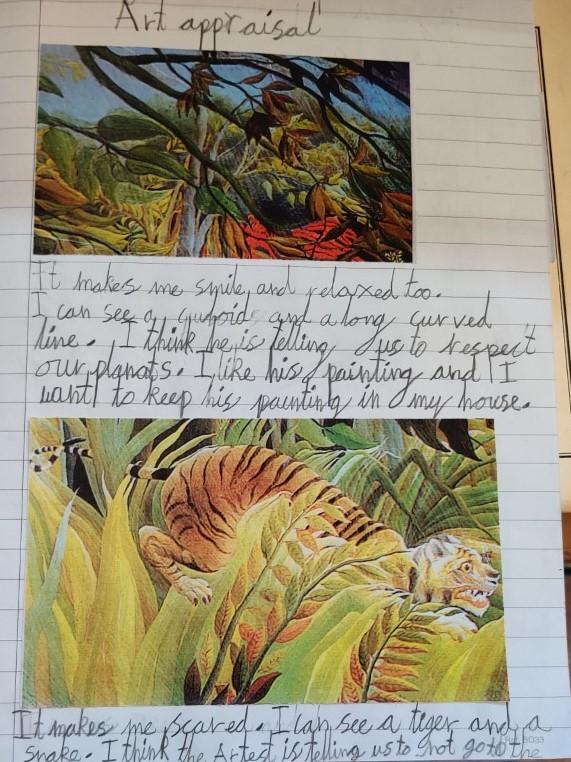 Art appraisal
It makes me smile and relaxed too.
I can see a cuboids and a long curved
line. I think he is telling us to respect
our planats. I like his painting and I
want to keep his painting in my house.
It makes me scared. I can see a tiger and a
snake. I think the Artest is telling us to not go to the